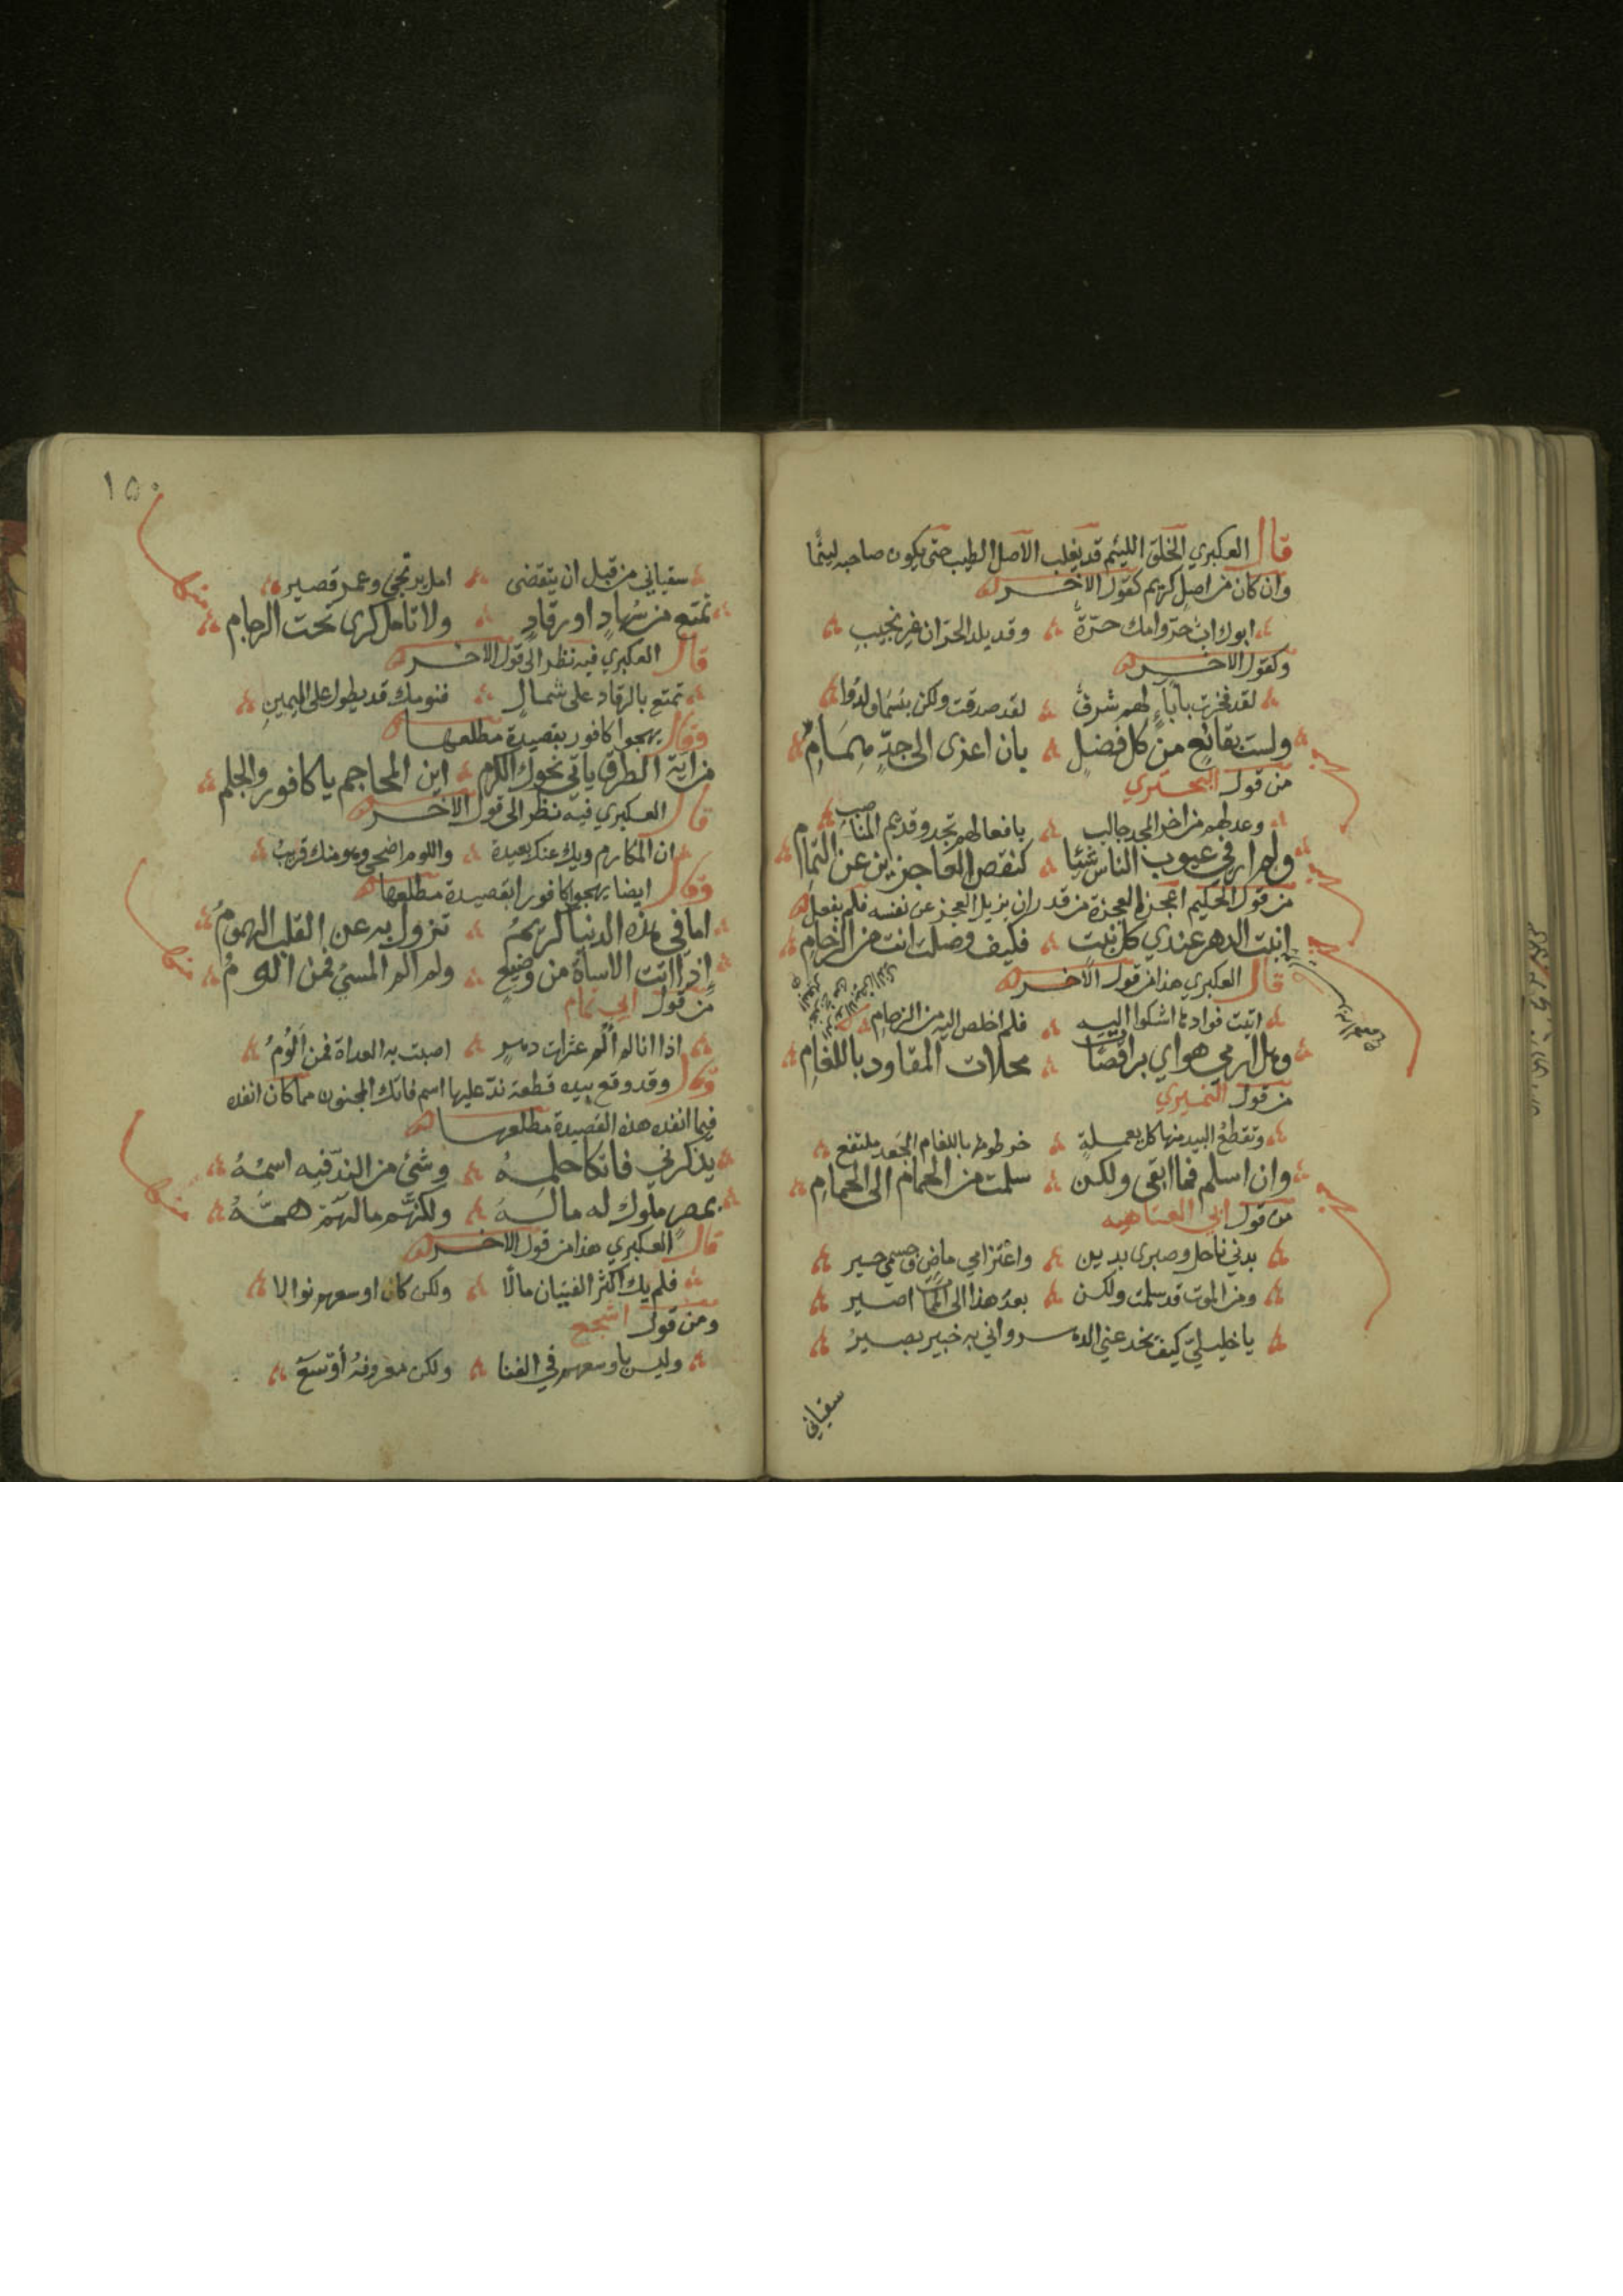 قال العكبري الخلق اللئيم قد يغلب الاصل الطيب حتى يكون صاحبه لئيمًا
وان كان من اصل كريم كقول الاخر
ابوك اب حرّ وامك حرّة وقد يلد الحرّان غير نجيب
وكقول الاخر
لقد فخرت باباءٍ لهم شرف لقد صدقت ولكن بئسما ولدوا
ولست بقانع من كل فضل بان اعزى الى جدّ همام
من قول البحتري
بافعالهم تجد وقديم المناصب
ولم ار في عيوب الناس شيئا كنقص العاجزين عن التمام
من قول الحكيم اعجز العجزة من قدر ان يزيل العجز عن نفسه فلم يفعل
ابنت الدهر عندي كل بنت فكيف وصلت انت من الزحام
قال العكبري هذا من قول الاخر
اتيت فوادها اشكوا اليه فلم اخلص اليه من الزحام
وهل ارمي هواي براقصات محلات المقاود باللغام
من قول النميري
وتقطع البيد منها كل يعملة خرطومها باللغام الجعد ملتفع
وان اسلم فما ابقى ولكن سلمت من الحمام الى الحمام
من قول ابي العتاهيه
بدني ناحل وصبرى بدين واعتزامي ماض وجسمي حسير
ومن الموت قد سلمت ولكن بعد هذا الى المّا اصير
يا خليليّ كيف يخدعني الدهـ ـر واني به خبير بصير
سقياني
١٥٠
سقياني من قبل ان يتقضى امل يرتجى وعمر قصير
تمتع من سُهادٍ او رقادٍ ولا تامل كرى تحت الرجام
قال العكبري فيه نظر الى قول الاخر
تمتع بالرقاد على شمال فنومك قد يطول على اليمين
وقال يهجوا كافور بقصيدة مطلعها
من اية الطرق ياتي نحوك الكرم اين المحاجم يا كافور والجلم
قال العكبري فيه نظر الى قول الاخر
ان المكارم ويك عنك بعيدة واللوم اضحى وهو منك قريب
وقال ايضا يهجوا كافور ابقصيدة مطلعها
اما في هذه الدنيا كريمُ تزول به عن القلب الهمومُ
اذا اتت الاساة من وضيع ولم الم المسيئ فمن الومُ
من قول ابي تمام
اذا انا لم الم عثرات دهر اصبت به الغداة فمن اَلُومُ
وقال وقد وقع بيده قطعة ندّ عليها اسم فاتك المجنون مما كان انفده
فيما انفده هذه القصيدة مطلعها
يذكرني فاتكا حلمهُ وشئ من الندّ فيه اسمُهُ
بمصر ملوك له ما لهُ ولكنّهم ما لهم همّهُ
قال العكبري هذا من قول الاخر
فلم يك اكثر الفتيان مالًا ولكن كان اوسعهم نوالا
ومن قول اشجع
وليس باوسعهم في الغنا ولكن معروفهُ أوسَعُ